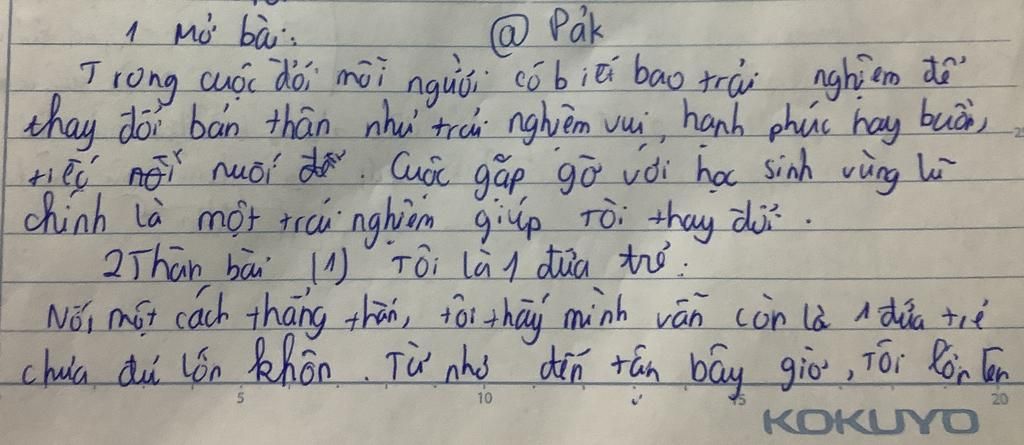 1 Mở bài: @ Pảk
Trong cuộc đời mỗi người có biết bao trải nghiệm để
thay đổi bản thân như trải nghiệm vui, hạnh phúc hay buồn,
tiếc nối nuối. Cuộc gặp gỡ với học sinh vùng lũ
chính là một trải nghiệm giúp Tôi thay đổi.
2 Thân bài (1) Tôi là 1 đứa trẻ.
Nói một cách thẳng thắn, tôi thấy mình vẫn còn là 1 đứa trẻ
chưa đủ lớn khôn. Từ nhỏ đến tận bây giờ, Tôi lớn lên
5 10 15 20
KOKUYO